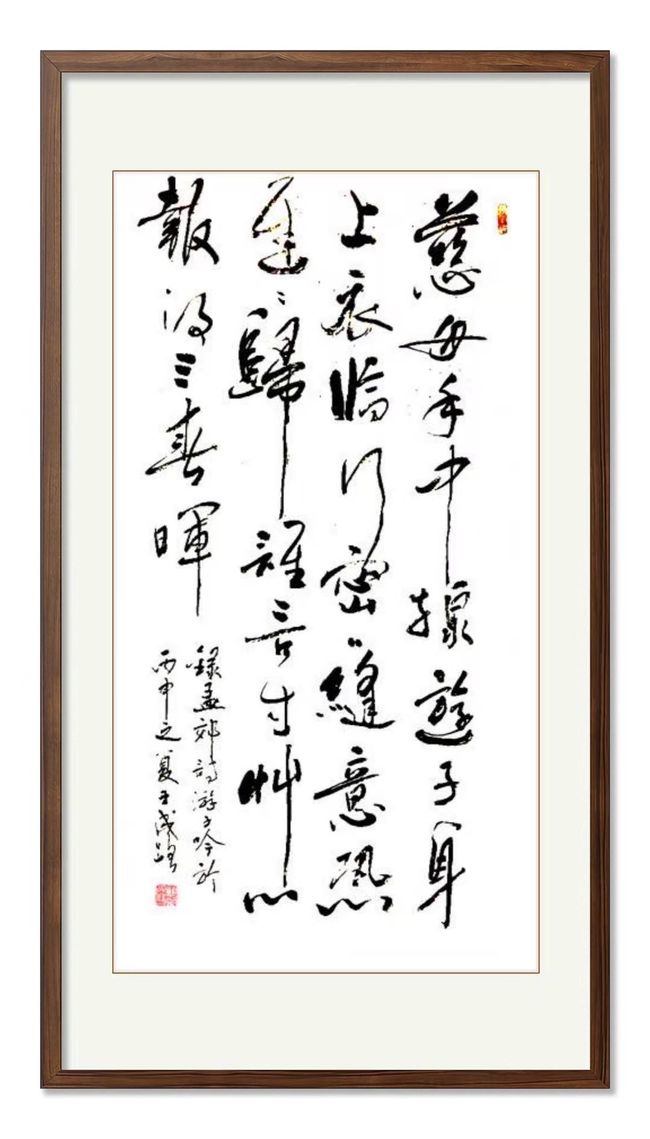 慈母手中線遊子身
上衣臨行密々縫意恐
遲々歸誰言寸艸心
報得三春暉
錄孟郊詩游子吟於
丙申之夏王